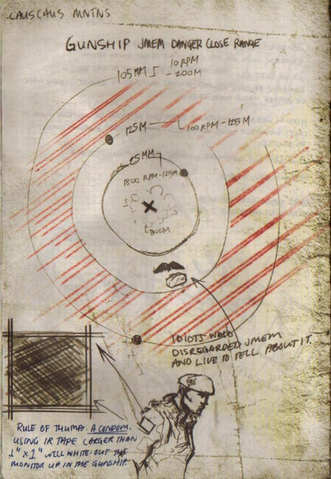 CAUSCAUS MNTNS
GUNSHIP JMEM DANGER CLOSE RANGE
105MM
10 RPM
-200M
125M
100 RPM-125M
25MM
1800 RPM-125M
IDIOTS WHO
DISREGARDED JMEM
AND LIVE TO TELL ABOUT IT.
RULE OF THUMB: A CONDOM.
USING IR TAPE LARGER THAN
1" x 1" WILL WHITE-OUT THE
MONITOR UP IN THE GUNSHIP.